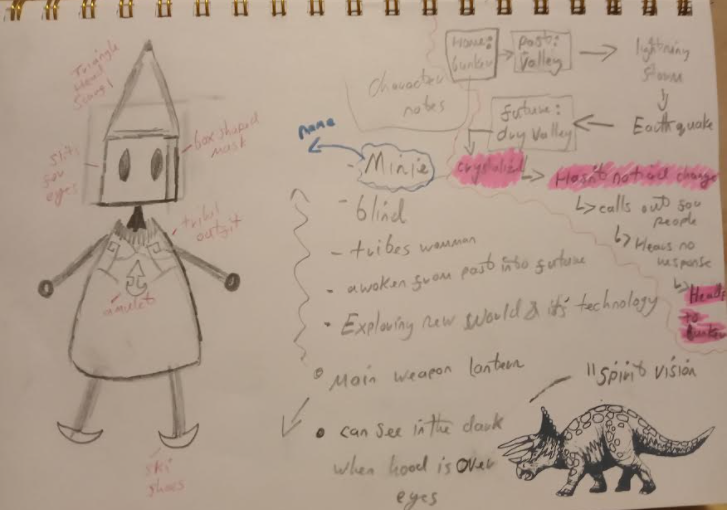 Triangle
Head
slits
for
eyes
box shaped
mask
tribal
outfit
amulet
ski
shoes
Character
notes
Home:
bunker
Past:
Valley
lightning
Storm
Earthquake
Future:
dry Valley
name
- Minie
crystalized
Hasn't noticed change
calls out for
people
Hears no
response
Heads
to
bunker
- blind
- tribes woman
- awoken from past into future
- Exploring new world & its' technology
Main weapon lantern
"Spirit vision
can see in the dark
when hood is over
eyes